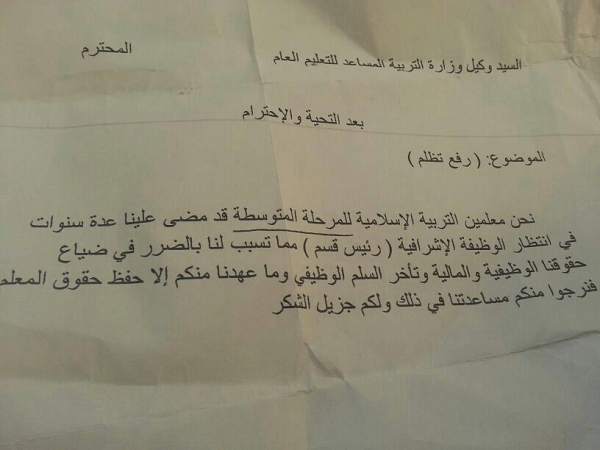 السيد وكيل وزارة التربية المساعد للتعليم العام المحترم
بعد التحية والإحترام
الموضوع: ( رفع تظلم )
نحن معلمين التربية الإسلامية للمرحلة المتوسطة قد مضى علينا عدة سنوات
في انتظار الوظيفة الإشرافية ( رئيس قسم ) مما تسبب لنا بالضرر في ضياع
حقوقنا الوظيفية والمالية وتأخر السلم الوظيفي وما عهدنا منكم إلا حفظ حقوق المعلم
فنرجوا منكم مساعدتنا في ذلك ولكم جزيل الشكر